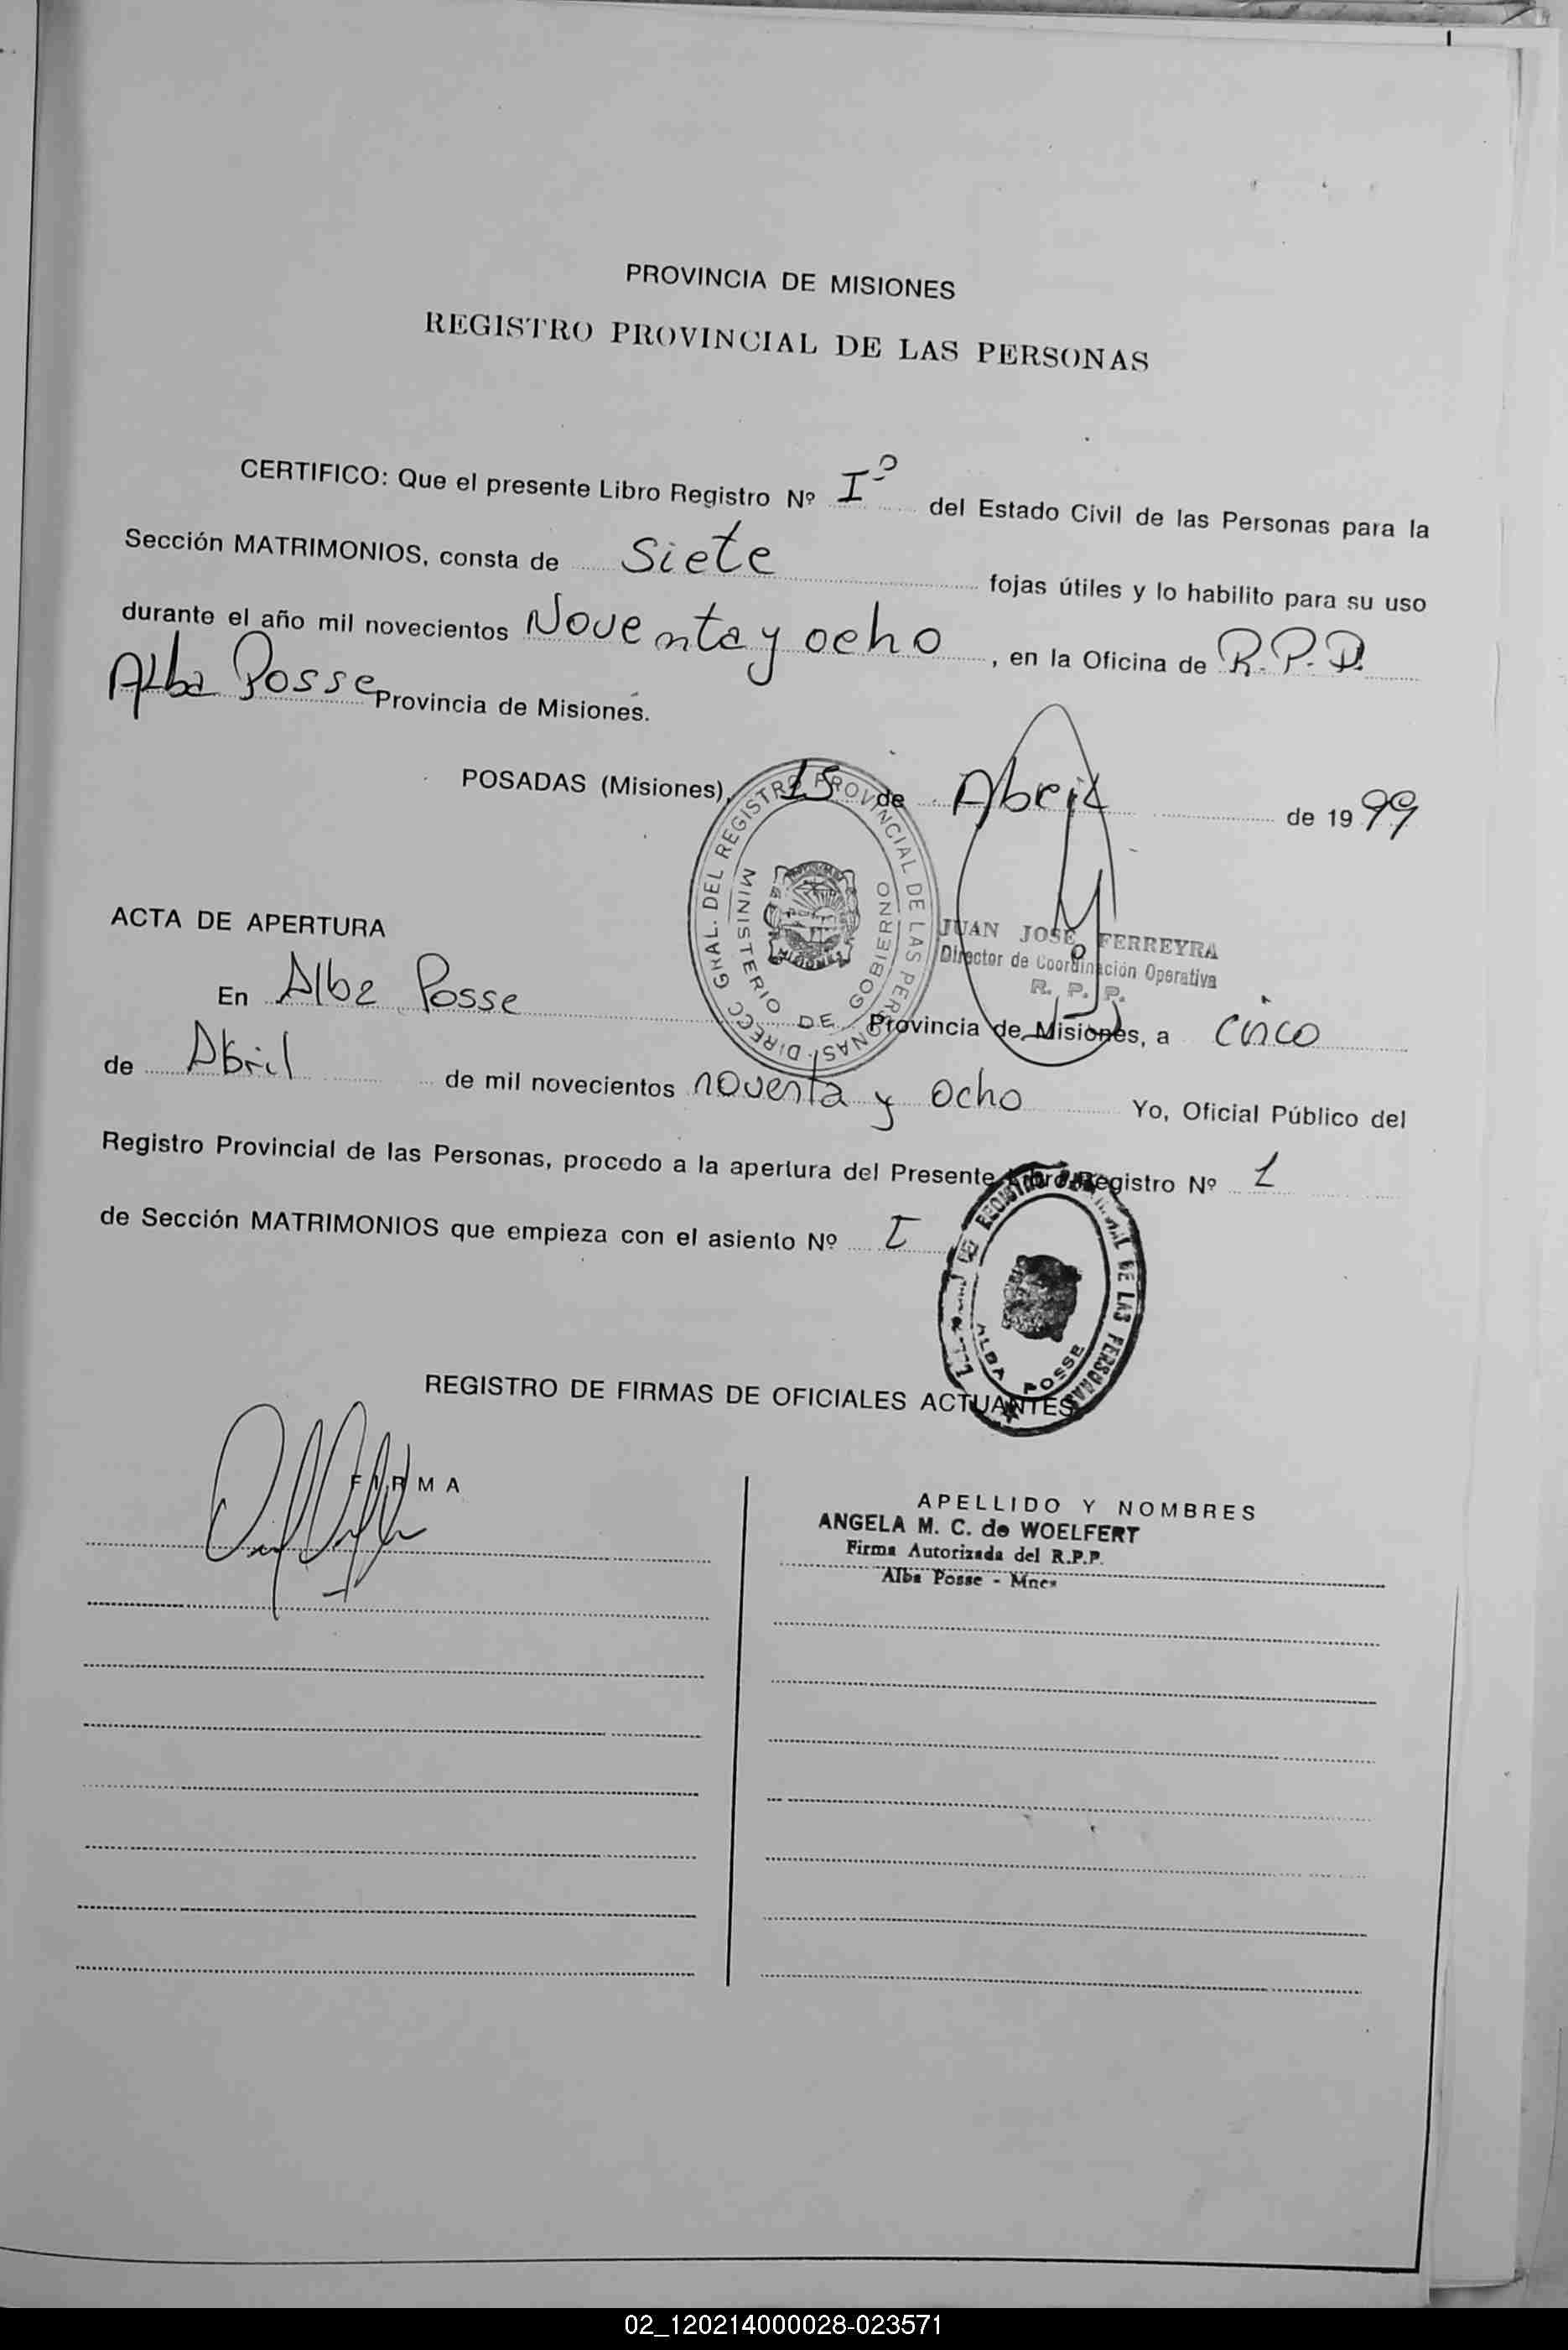 PROVINCIA DE MISIONES
REGISTRO PROVINCIAL DE LAS PERSONAS
CERTIFICO: Que el presente Libro Registro Nº Iº del Estado Civil de las Personas para la
Sección MATRIMONIOS, consta de siete fojas útiles y lo habilito para su uso
durante el año mil novecientos Noventa y ocho, en la Oficina de R.P.P.
Alba Posse Provincia de Misiones.
POSADAS (Misiones), 15 de Abril de 1999
DIRECC GRAL. DEL REGISTRO PROVINCIAL DE LAS PERSONAS
MINISTERIO DE GOBIERNO
MISIONES
JUAN JOSE FERREYRA
Director de Coordinación Operativa
R. P. P.
ACTA DE APERTURA
En Alba Posse Provincia de Misiones, a cinco
de Abril de mil novecientos noventa y ocho Yo, Oficial Público del
Registro Provincial de las Personas, procedo a la apertura del Presente Libro Registro Nº 1
de Sección MATRIMONIOS que empieza con el asiento Nº I
REGISTRO PROVINCIAL DE LAS PERSONAS
ALBA POSSE
REGISTRO DE FIRMAS DE OFICIALES ACTUANTES
FIRMA
APELLIDO Y NOMBRES
ANGELA M. C. de WOELFERT
Firma Autorizada del R.P.P.
Alba Posse - Mnes
02_120214000028-023571